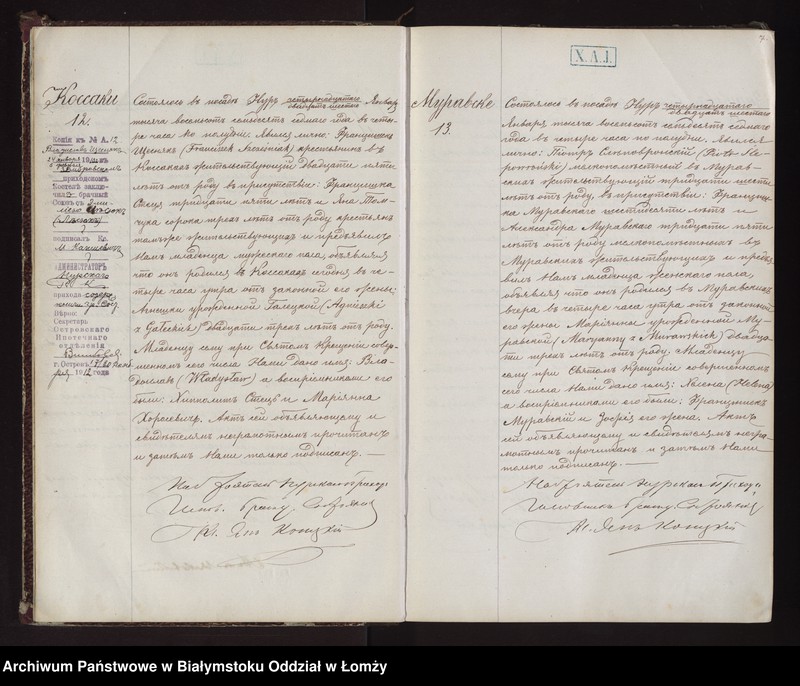 Коссаки
12.
Копія къ № А. 12
приходскомъ
Костелѣ заклю-
брачный
подписалъ Кс.
АДМИНИСТРАТОРЪ
прихода
Вѣрно:
Секретарь
Островскаго
Ипотечнаго
отдѣленія
г. Островъ
1912 года
Состоялось въ посадѣ Нуръ четырнадцатаго
двадцать шестаго Января
тысяча восемьсотъ семьдесятъ седьмаго года въ четы-
ре часа по полудни. Явился лично: Францишекъ
Щенякъ (Franciszek Szcześniak) крестьянинъ въ
Коссакахъ жительствующій двадцати пяти
лѣтъ отъ роду въ присутствіи: Францишка
тридцати пяти лѣтъ и
сорока трехъ лѣтъ отъ роду крестьянъ
тамъ же жительствующихъ и предъявилъ
Намъ младенца мужескаго пола, объявляя
что онъ родился въ Коссакахъ сегодня въ че-
тыре часа утра отъ законной его жены:
Агнешки урожденной Галецкой (Agnieszki
z Galeckich) двадцати трехъ лѣтъ отъ роду.
Младенцу сему при Святомъ Крещеніи совер-
шенномъ сего числа Нами дано имя: Вла-
дыславъ (Władysław) а воспріемниками его
были: и Маріянна
Актъ сей объявляющему и
свидѣтелямъ неграмотнымъ прочитанъ
и затѣмъ Нами только подписанъ. —
Настоятель Нурскаго Прихода
Кс. Янъ
Муравске
13.
Х.А.J.
7.
Состоялось въ посадѣ Нуръ четырнадцатаго
двадцать шестаго
Января тысяча восемьсотъ семьдесятъ седьмаго
года въ четыре часа по полудни. Явился
лично: Піотръ (Piotr
мелкопомѣстный въ Мурав-
скихъ жительствующій тридцати шести
лѣтъ отъ роду, въ присутствіи: Францыш-
ка Муравскаго шестидесяти лѣтъ и
Александра Муравскаго тридцати пяти
лѣтъ отъ роду мелкопомѣстныхъ въ
Муравскихъ жительствующихъ и предъя-
вилъ Намъ младенца женскаго пола,
объявляя что онъ родился въ Муравскихъ
вчера въ четыре часа утра отъ законной
его жены Маріянны урожденной Му-
равской (Maryanny z Murawskich) двадца-
ти трехъ лѣтъ отъ роду. Младенцу
сему при Святомъ Крещеніи совершенномъ
сего числа Нами дано имя: Хелена (Helena)
а воспріемниками его были: Францишекъ
Муравскій и Зофія его жена. Актъ
сей объявляющему и свидѣтелямъ негра-
мотнымъ прочитанъ и затѣмъ Нами
только подписанъ. —
Настоятель Нурскаго Прихода
Кс. Янъ
Archiwum Państwowe w Białymstoku Oddział w Łomży